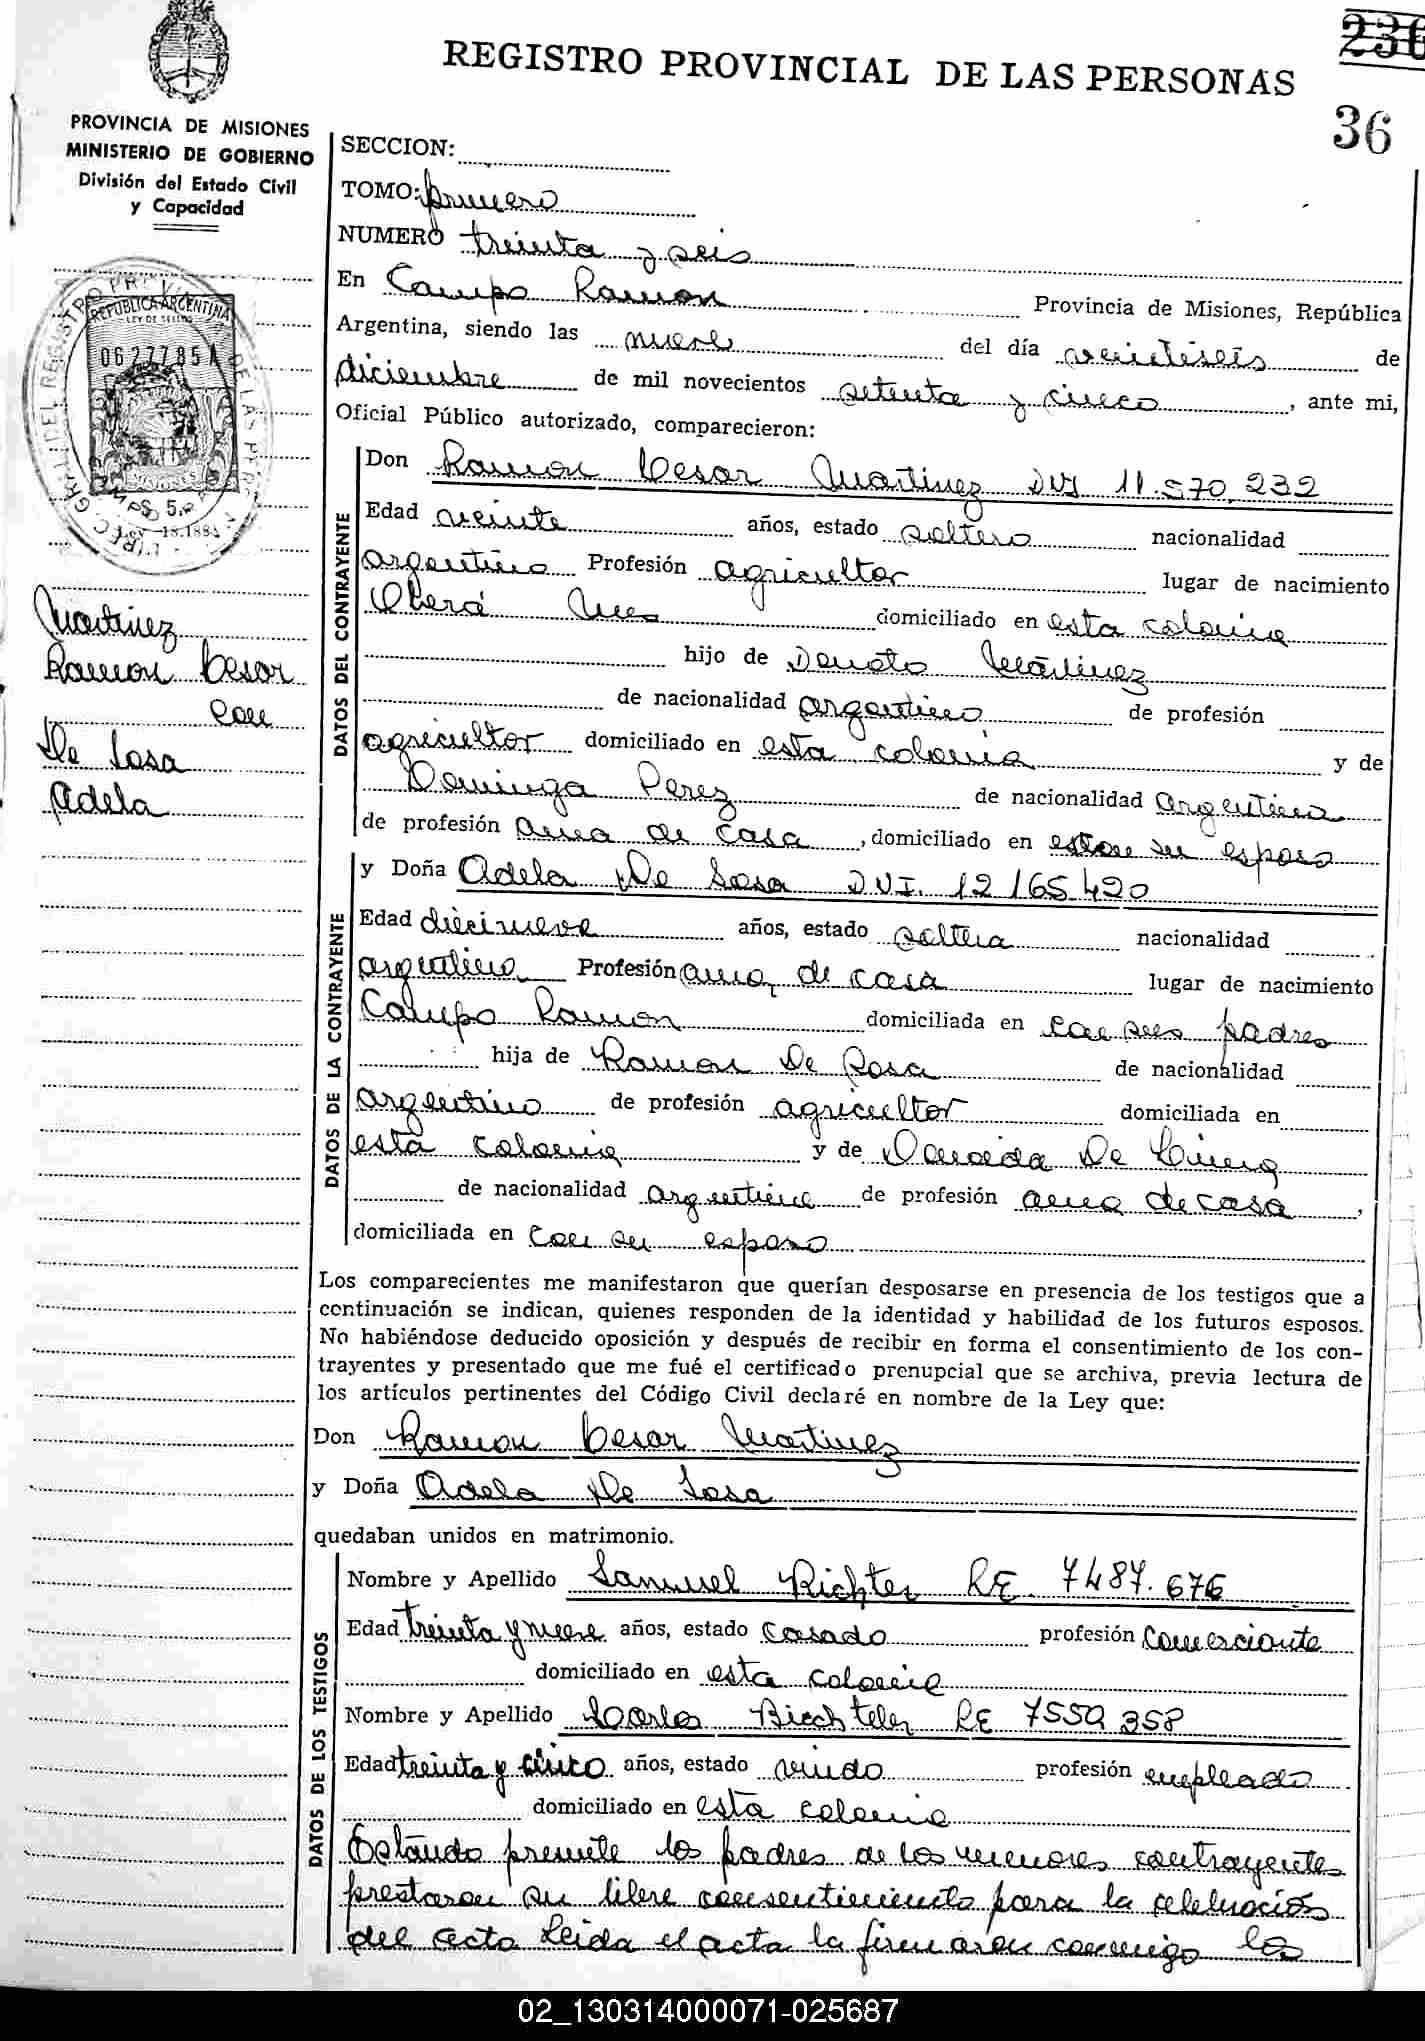 REGISTRO PROVINCIAL DE LAS PERSONAS
236
36
PROVINCIA DE MISIONES
MINISTERIO DE GOBIERNO
División del Estado Civil
y Capacidad
REPUBLICA ARGENTINA
LEY DE SELLOS
0627785A
MISIONES
Martinez
Ramon Cesar
con
De Sosa
Adela
SECCION:
TOMO: primero
NUMERO treinta y seis
En Campo Ramon Provincia de Misiones, República
Argentina, siendo las nueve del día veintiseis de
diciembre de mil novecientos setenta y cinco, ante mi,
Oficial Público autorizado, comparecieron:
DATOS DEL CONTRAYENTE
Don Ramon Cesar Martinez DNI 11.570.232
Edad veinte años, estado soltero nacionalidad
argentino Profesión agricultor lugar de nacimiento
Oberá Mnes domiciliado en esta colonia
hijo de Donato Martinez
de nacionalidad argentino de profesión
agricultor domiciliado en esta colonia y de
Dominga Perez de nacionalidad argentina
de profesión ama de casa, domiciliado en su esposo
DATOS DE LA CONTRAYENTE
y Doña Adela De Sosa DNI. 12165420
Edad diecinueve años, estado soltera nacionalidad
argentina Profesión ama de casa lugar de nacimiento
Campo Ramon domiciliada en con sus padres
hija de Ramon De Sosa de nacionalidad
argentino de profesión agricultor domiciliada en
esta colonia y de De
de nacionalidad argentina de profesión ama de casa,
domiciliada en con su esposo
Los comparecientes me manifestaron que querían desposarse en presencia de los testigos que a
continuación se indican, quienes responden de la identidad y habilidad de los futuros esposos.
No habiéndose deducido oposición y después de recibir en forma el consentimiento de los con-
trayentes y presentado que me fué el certificado prenupcial que se archiva, previa lectura de
los artículos pertinentes del Código Civil declaré en nombre de la Ley que:
Don Ramon Cesar Martinez
y Doña Adela De Sosa
quedaban unidos en matrimonio.
DATOS DE LOS TESTIGOS
Nombre y Apellido Samuel Richter RE. 7487.676
Edad treinta y nueve años, estado casado profesión comerciante
domiciliado en esta colonia
Nombre y Apellido Carlos RE 7559 358
Edad treinta y cinco años, estado viudo profesión empleado
domiciliado en esta colonia
Estando presente los padres de los menores contrayentes
prestaron su libre consentimiento para la celebración
del acto Leida el acta la firmaron conmigo los
02_130314000071-025687